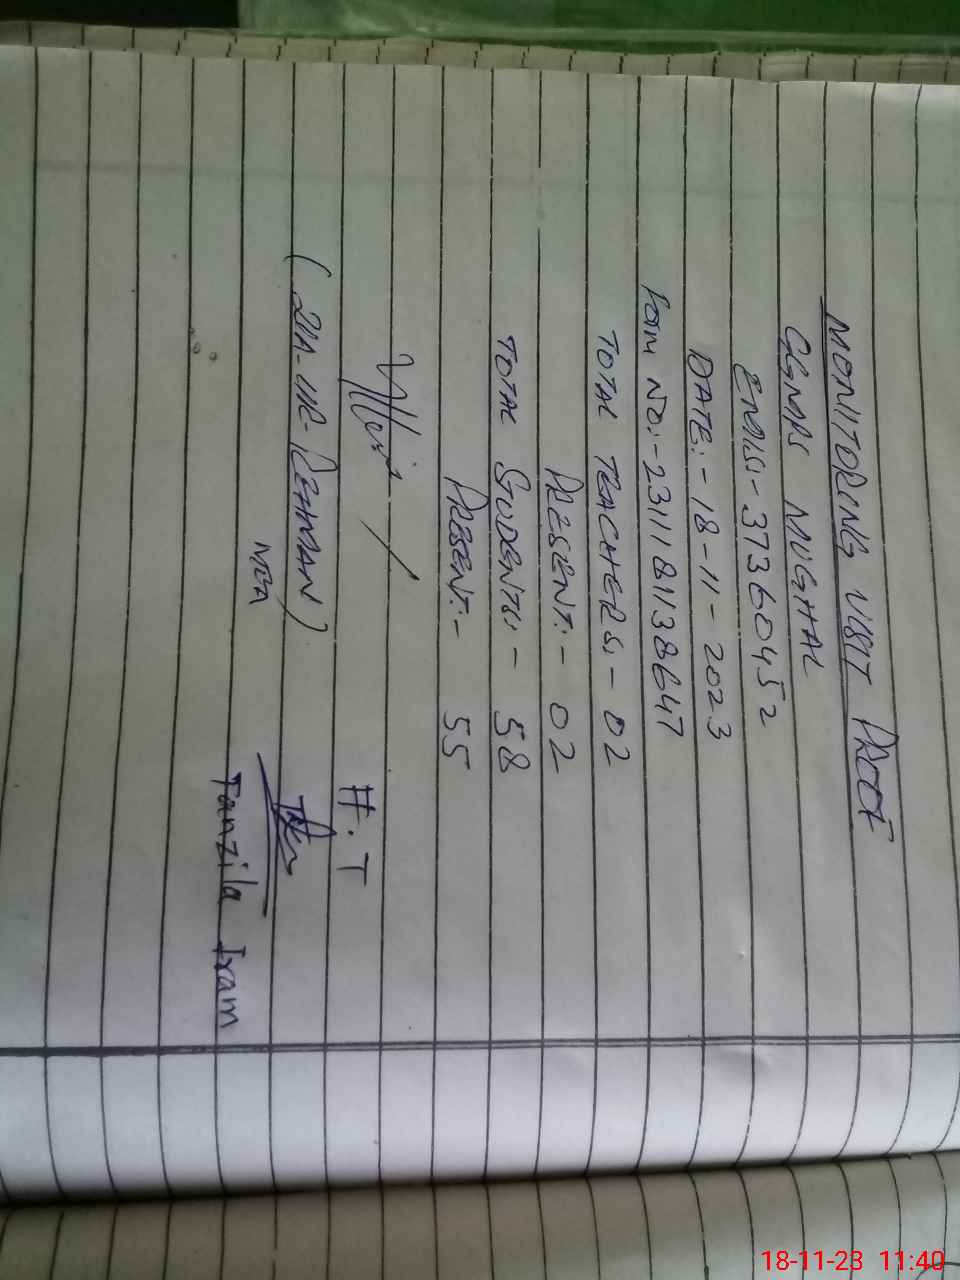 MONITORING VISIT PROOF
GGMPS MUGHAL
EMIS:- 37360452
DATE:- 18-11-2023
FORM NO:- 2311181138647
TOTAL TEACHERS:- 02
PRESENT:- 02
TOTAL STUDENTS:- 58
PRESENT:- 55
(ZIA-UR-REHMAN)
MEA
H.T
Tanzila Iram
18-11-23 11:40